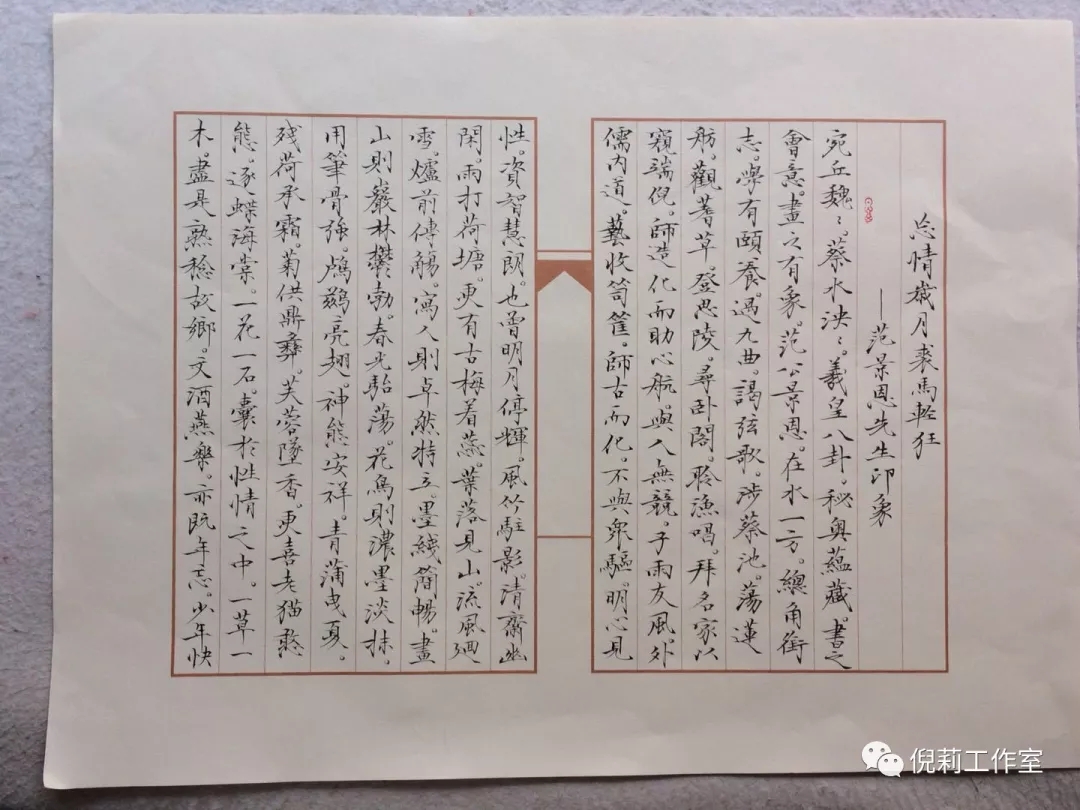 恣情歲月裘馬輕狂
——范景恩先生印象
宛丘魏〻。蔡水泱〻。羲皇八卦。秘奥蘊藏。書之
會意。畫之有象。范公景恩。在水一方。總角銜
志。學有頤養。過九曲。謁弦歌。涉蔡池。蕩蓮
舫。觀蓍草。登思陵。尋卧閣。聆漁唱。拜名家以
窺端倪。師造化而助心航。與人無競。子雨友風。外
儒内道。藝收笥筐。師古而化。不與衆驅。明心見
性。資智慧朗。也曾明月停輝。風竹駐影。清齋幽
閑。雨打荷塘。更有古梅着蕊。葉落見山。流風廻
雪。爐前傳觴。寫人則卓然特立。墨綫簡暢。畫
山則巖林鬱勃。春光駘蕩。花鳥則濃墨淡抹。
用筆骨強。鸕鷀亮翅。神態安祥。青蒲曳夏。
殘荷承霜。菊供鼎彝。芙蓉墜香。更喜老猫憨
態。逐蝶海棠。一花一石。囊於性情之中。一草一
木。盡是熟稔故鄉。文酒燕樂。亦既年忘。少年快
倪莉工作室